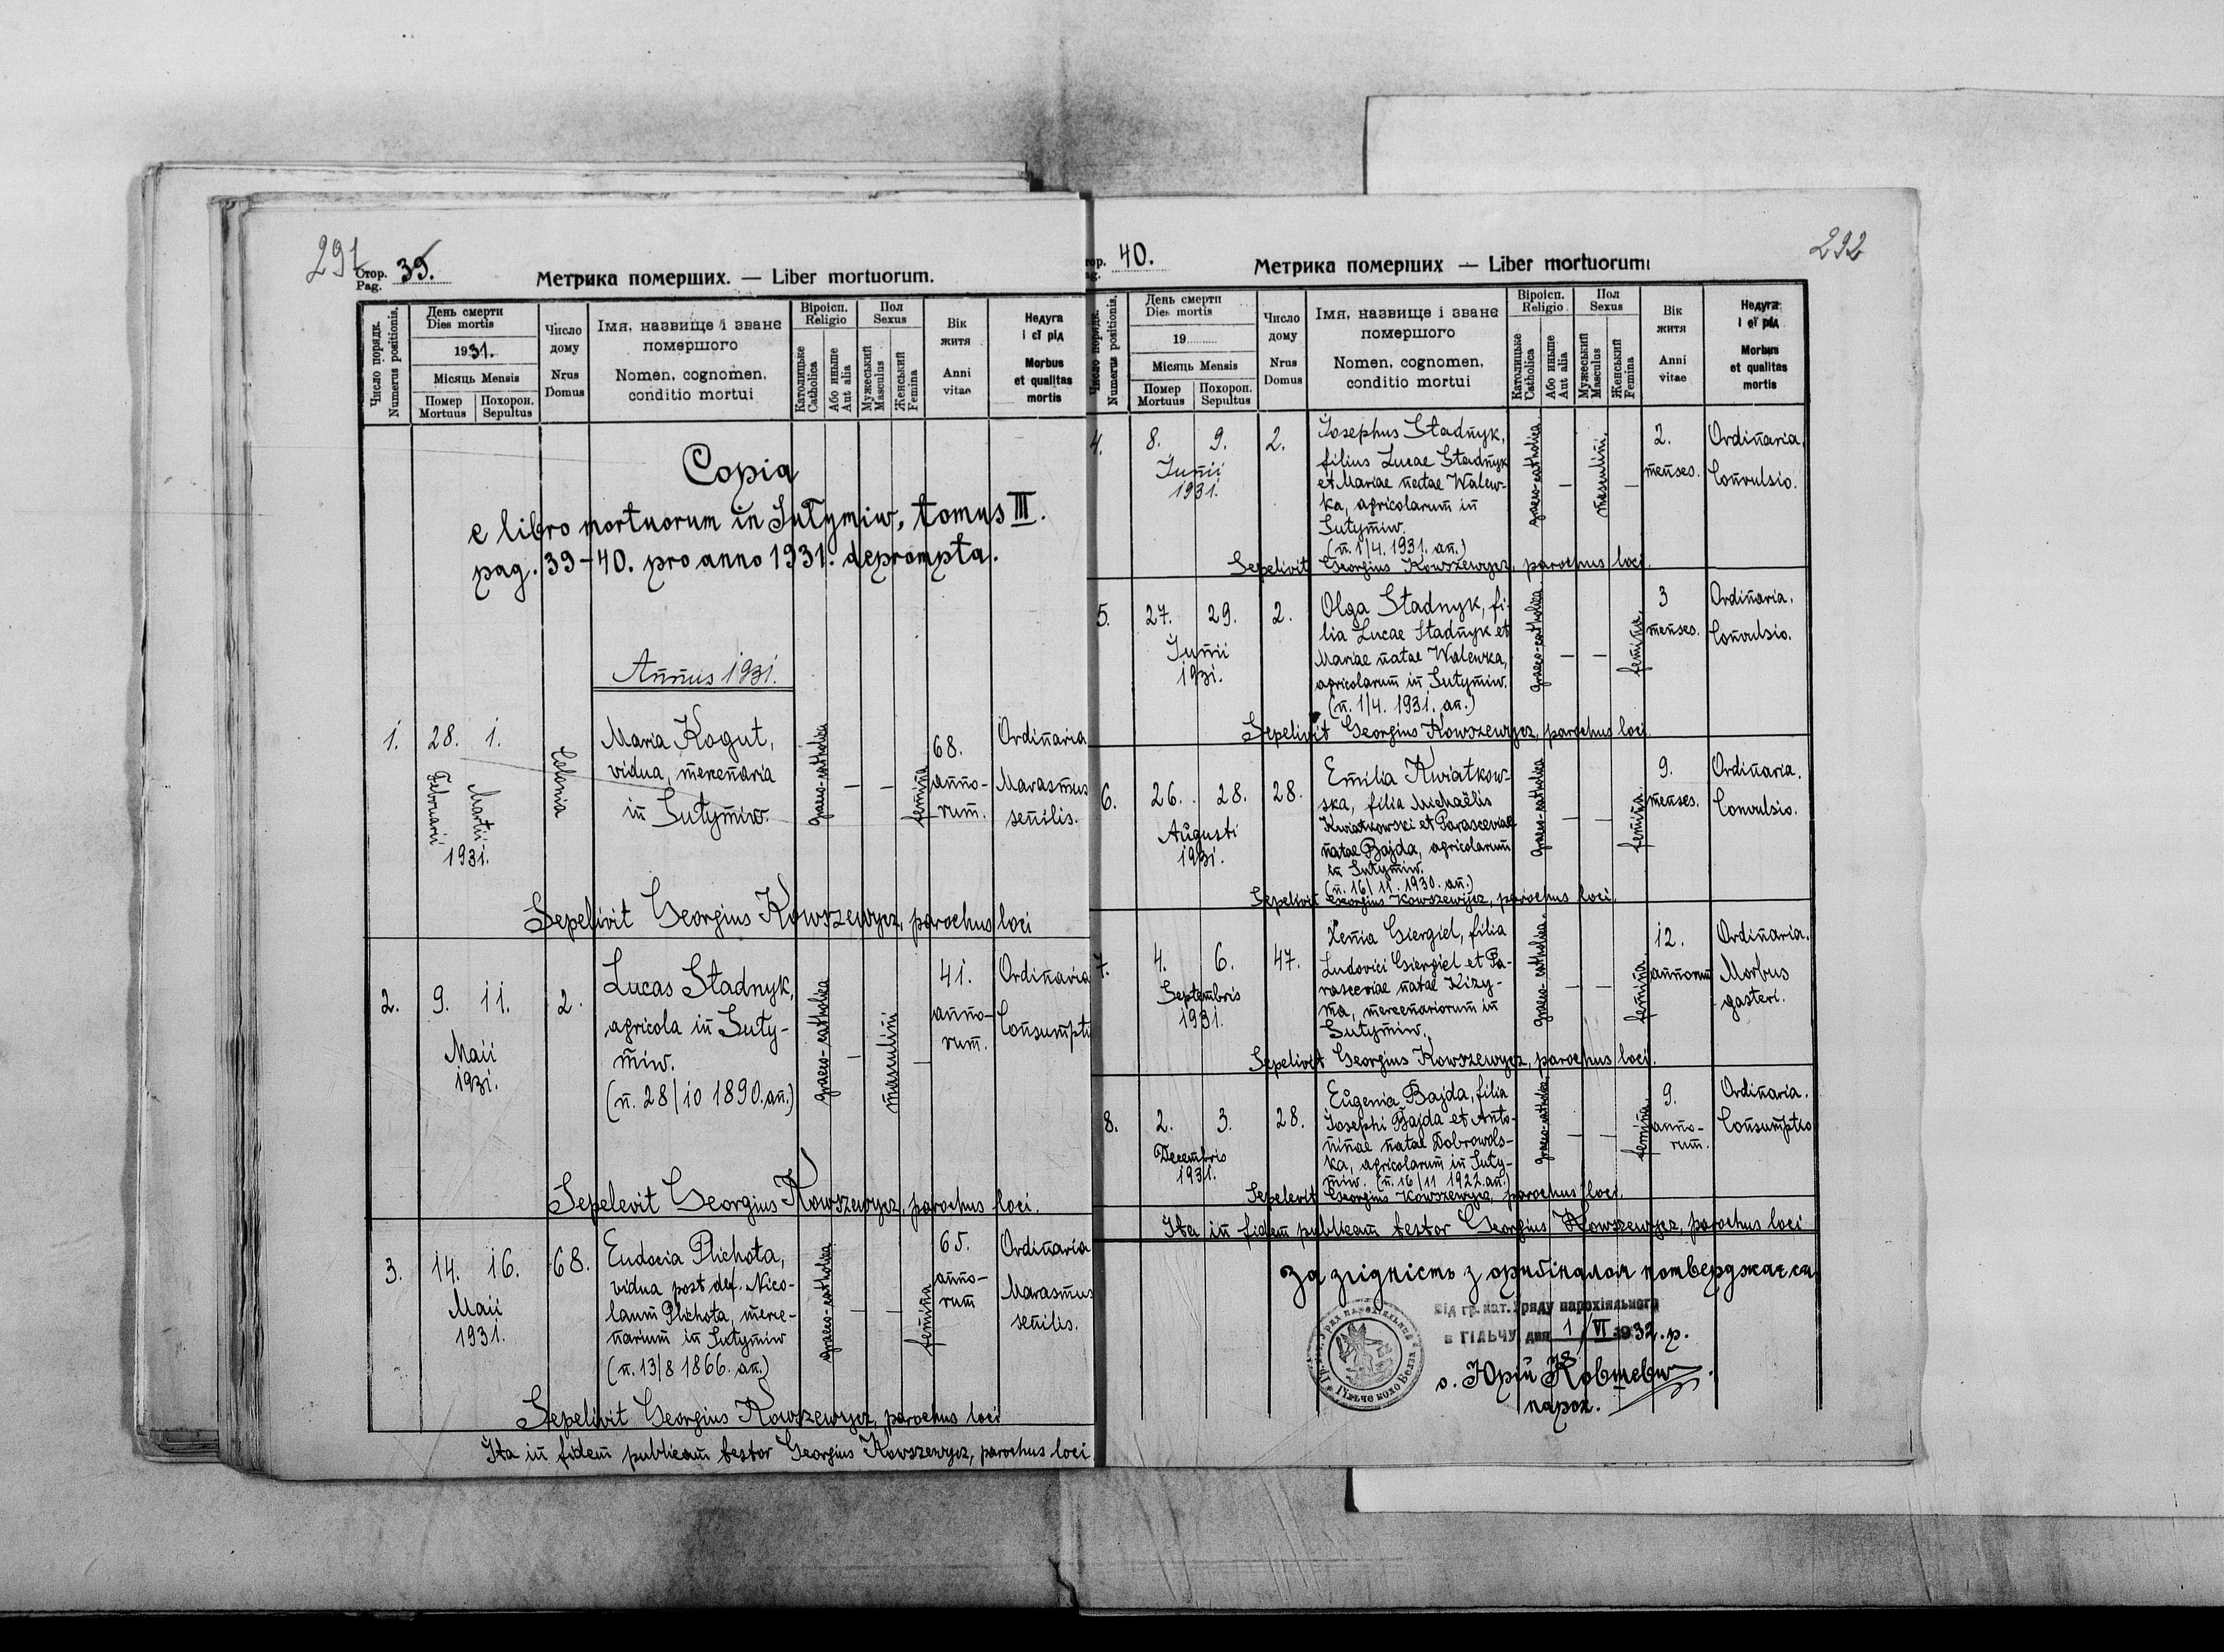 291
Стор.
Pag. 39.
Метрика померших. — Liber mortuorum.
Число порядк.
Numerus positionis,
День смерти
Dies mortis
1931.
Місяць Mensis
Помер
Mortuus
Похорон.
Sepultus
Число
дому
Nrus
Domus
Імя, назвище і званє
помершого
Nomen, cognomen,
conditio mortui
Віроісп.
Religio
Католицьке
Catholica
Або иньше
Aut alia
Пол
Sexus
Мужеський
Masculus
Женський
Femina
Вік
житя
Anni
vitae
Недуга
і єї рід
Morbus
et qualitas
mortis
Copia
e libro mortuorum in Sutymiw, tomus III.
pag. 39-40. pro anno 1931. deprompta.
Annus 1931.
1.
28. 1.
Februarii
Martii
1931.
Colonia
Maria Kogut,
vidua, mercenaria
in Sutymiw.
graeco-catholica
—
—
femina
68.
anno-
rum.
Ordinaria
Marasmus
senilis.
Sepelivit Georgius Kowszewycz, parochus loci
2.
9. 11.
Maii
1931.
2.
Lucas Stadnyk,
agricola in Suty-
miw.
(n. 28/10 1890. an.)
graeco-catholica
—
masculini
—
41.
anno-
rum.
Ordinaria
Sepelevit Georgius Kowszewycz, parochus loci.
3.
14. 16.
Maii
1931.
68.
Eudocia Plichota,
vidua post def. Nico-
laum Plichota, merce-
narium in Sutymiw
(n. 13/8 1866. an.)
graeco-catholica
—
—
femina
65.
anno-
rum
Ordinaria
Marasmus
senilis.
Sepelivit Georgius Kowszewycz, parochus loci
Ita in fidem publicam testor Georgius Kowszewycz, parochus loci
292
тор. 40.
ag.
Метрика померших — Liber mortuorum
Число порядк.
Numerus positionis,
День смерти
Dies mortis
19
Місяць Mensis
Помер
Mortuus
Похорон.
Sepultus
Число
дому
Nrus
Domus
Імя, назвище і званє
помершого
Nomen, cognomen,
conditio mortui
Віроісп.
Religio
Католицьке
Catholica
Або иньше
Aut alia
Пол
Sexus
Мужеський
Masculus
Женський
Femina
Вік
житя
Anni
vitae
Недуга
і єї рід
Morbus
et qualitas
mortis
4.
8. 9.
Junii
1931.
2.
Josephus Stadnyk,
filius Lucae Stadnyk
et Mariae natae Walew-
ka, agricolarum in
Sutymiw.
(n. 1/4. 1931. an.)
graeco-catholica.
—
masculini.
—
2.
menses.
Ordinaria.
Convulsio.
Sepelivit Georgius Kowszewycz, parochus loci.
5.
27. 29.
Junii
1931.
2.
Olga Stadnyk, fi-
lia Lucae Stadnyk et
Mariae natae Walewka,
agricolarum in Sutymiw.
(n. 1/4. 1931. an.)
graeco-catholica
—
—
femina.
3
menses.
Ordinaria.
Convulsio.
Sepelivit Georgius Kowszewycz, parochus loci.
6.
26. 28.
Augusti
1931.
28.
Emilia Kwiatkow-
ska, filia Michaëlis
Kwiatkowski et Parasceviae
natae Bajda, agricolarum
in Sutymiw.
(n. 16/11. 1930. an.)
graeco-catholica
—
—
femina.
9.
menses.
Ordinaria.
Convulsio.
Sepelivit Georgius Kowszewycz, parochus loci.
7.
4. 6.
Septembris
1931.
47.
Xenia Giergiel, filia
Ludovici Giergiel et Pa-
rasceviae natae Kizy-
ma, mercenariorum in
Sutymiw.
graeco-catholica.
—
—
femina.
12.
annorum
Ordinaria.
Morbus
gasteri.
Sepelivit Georgius Kowszewycz, parochus loci.
8.
2. 3.
Decembris
1931.
28.
Eugenia Bajda, filia
Josephi Bajda et Anto-
ninae natae Dobrowols-
ka, agricolarum in Suty-
miw. (n. 16/11 1922. an.)
graeco-catholica.
—
—
femina.
9.
anno-
rum.
Ordinaria.
Consumptio
Sepelevit Georgius Kowszewycz, parochus loci.
Ita in fidem publicam testor Georgius Kowszewycz, parochus loci
За згідність з оригіналом потверджаєся
Від гр. кат. Уряду парохіяльного
в ГІЛЬЧУ, дня 1/VI 1932. р.
о. Юрій Ковшевич
парох.